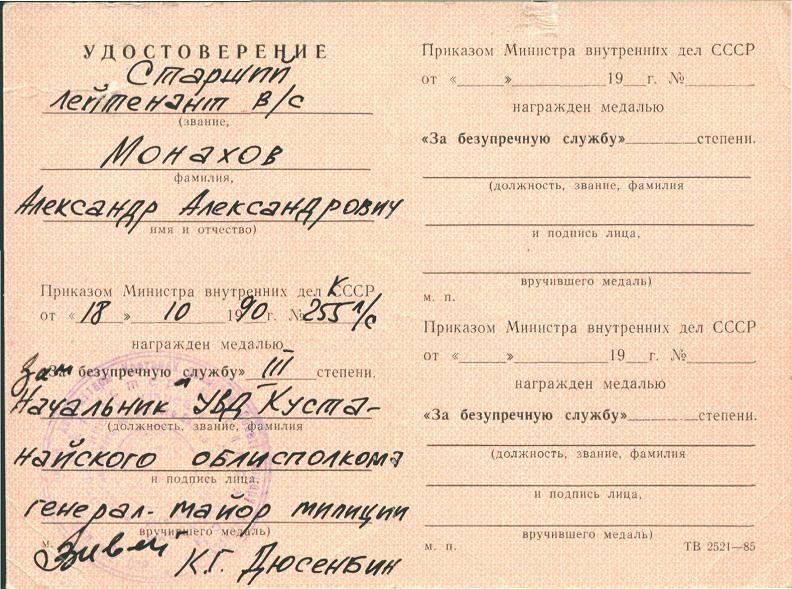 УДОСТОВЕРЕНИЕ
Старший
лейтенант в/с
(звание,
Монахов
фамилия,
Александр Александрович
имя и отчество)
Приказом Министра внутренних дел К СССР
от «18» 10 1990г. № 255 л/с
награжден медалью
«За безупречную службу» III степени.
Начальник УВД Куста-
(должность, звание, фамилия
найского облисполкома
и подпись лица,
генерал-майор милиции
вручившего медаль)
м.
К.Г. Дюсенбин
Приказом Министра внутренних дел СССР
от «____»________19__г. №______
награжден медалью
«За безупречную службу»______степени.
(должность, звание, фамилия
и подпись лица,
вручившего медаль)
м. п.
Приказом Министра внутренних дел СССР
от «____»________19__г. №______
награжден медалью
«За безупречную службу»______степени.
(должность, звание, фамилия
и подпись лица,
вручившего медаль)
м. п.
ТВ 2521—85